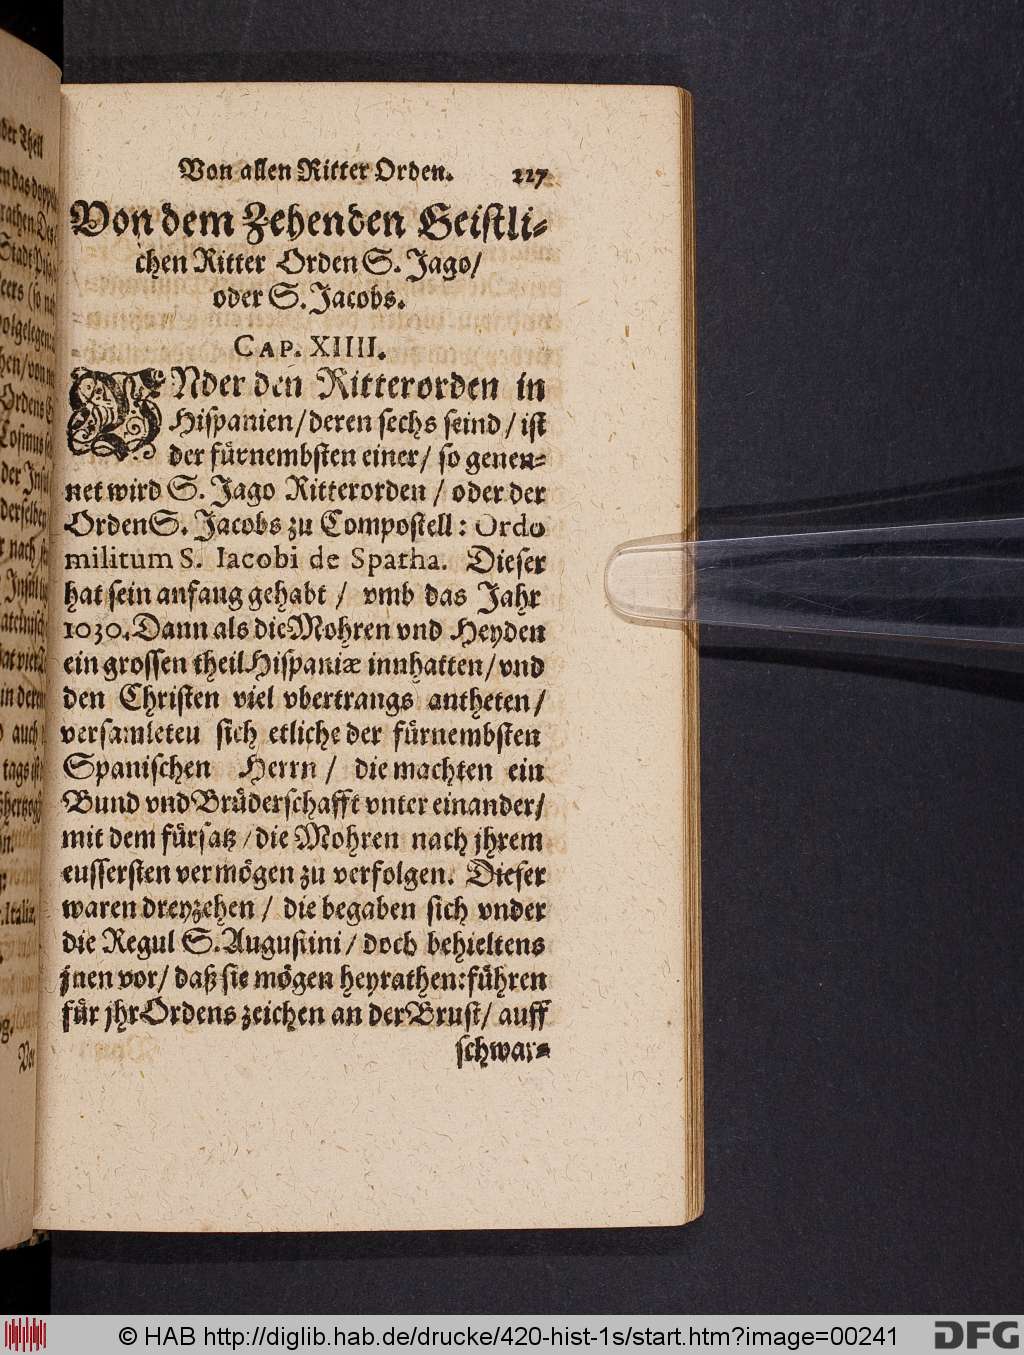 Von allen Ritter Orden. 227
Von dem Zehenden Geistli-
chen Ritter Orden S. Jago/
oder S. Jacobs.
CAP. XIIII.
VNder den Ritterorden in
Hispanien/deren sechs seind/ist
der fürnembsten einer/ so genen-
net wird S. Jago Ritterorden / oder der
Orden S. Jacobs zu Compostell: Ordo
militum S. Iacobi de Spatha. Dieser
hat sein anfang gehabt / vmb das Jahr
1030. Dann als die Mohren vnd Heyden
ein grossen theil Hispaniæ innhatten/vnd
den Christen viel vbertrangs antheten/
versamleten sich etliche der fürnembsten
Spanischen Herrn / die machten ein
Bund vnd Brüderschafft vnter einander/
mit dem fürsatz/die Mohren nach jhrem
eussersten vermögen zu verfolgen. Dieser
waren dreyzehen / die begaben sich vnder
die Regul S. Augustini/ doch behieltens
jnen vor/ daß sie mögen heyrathen: führen
für jhr Ordens zeichen an der Brust/ auff
schwar-
der Theil
© HAB http://diglib.hab.de/drucke/420-hist-1s/start.htm?image=00241
DFG